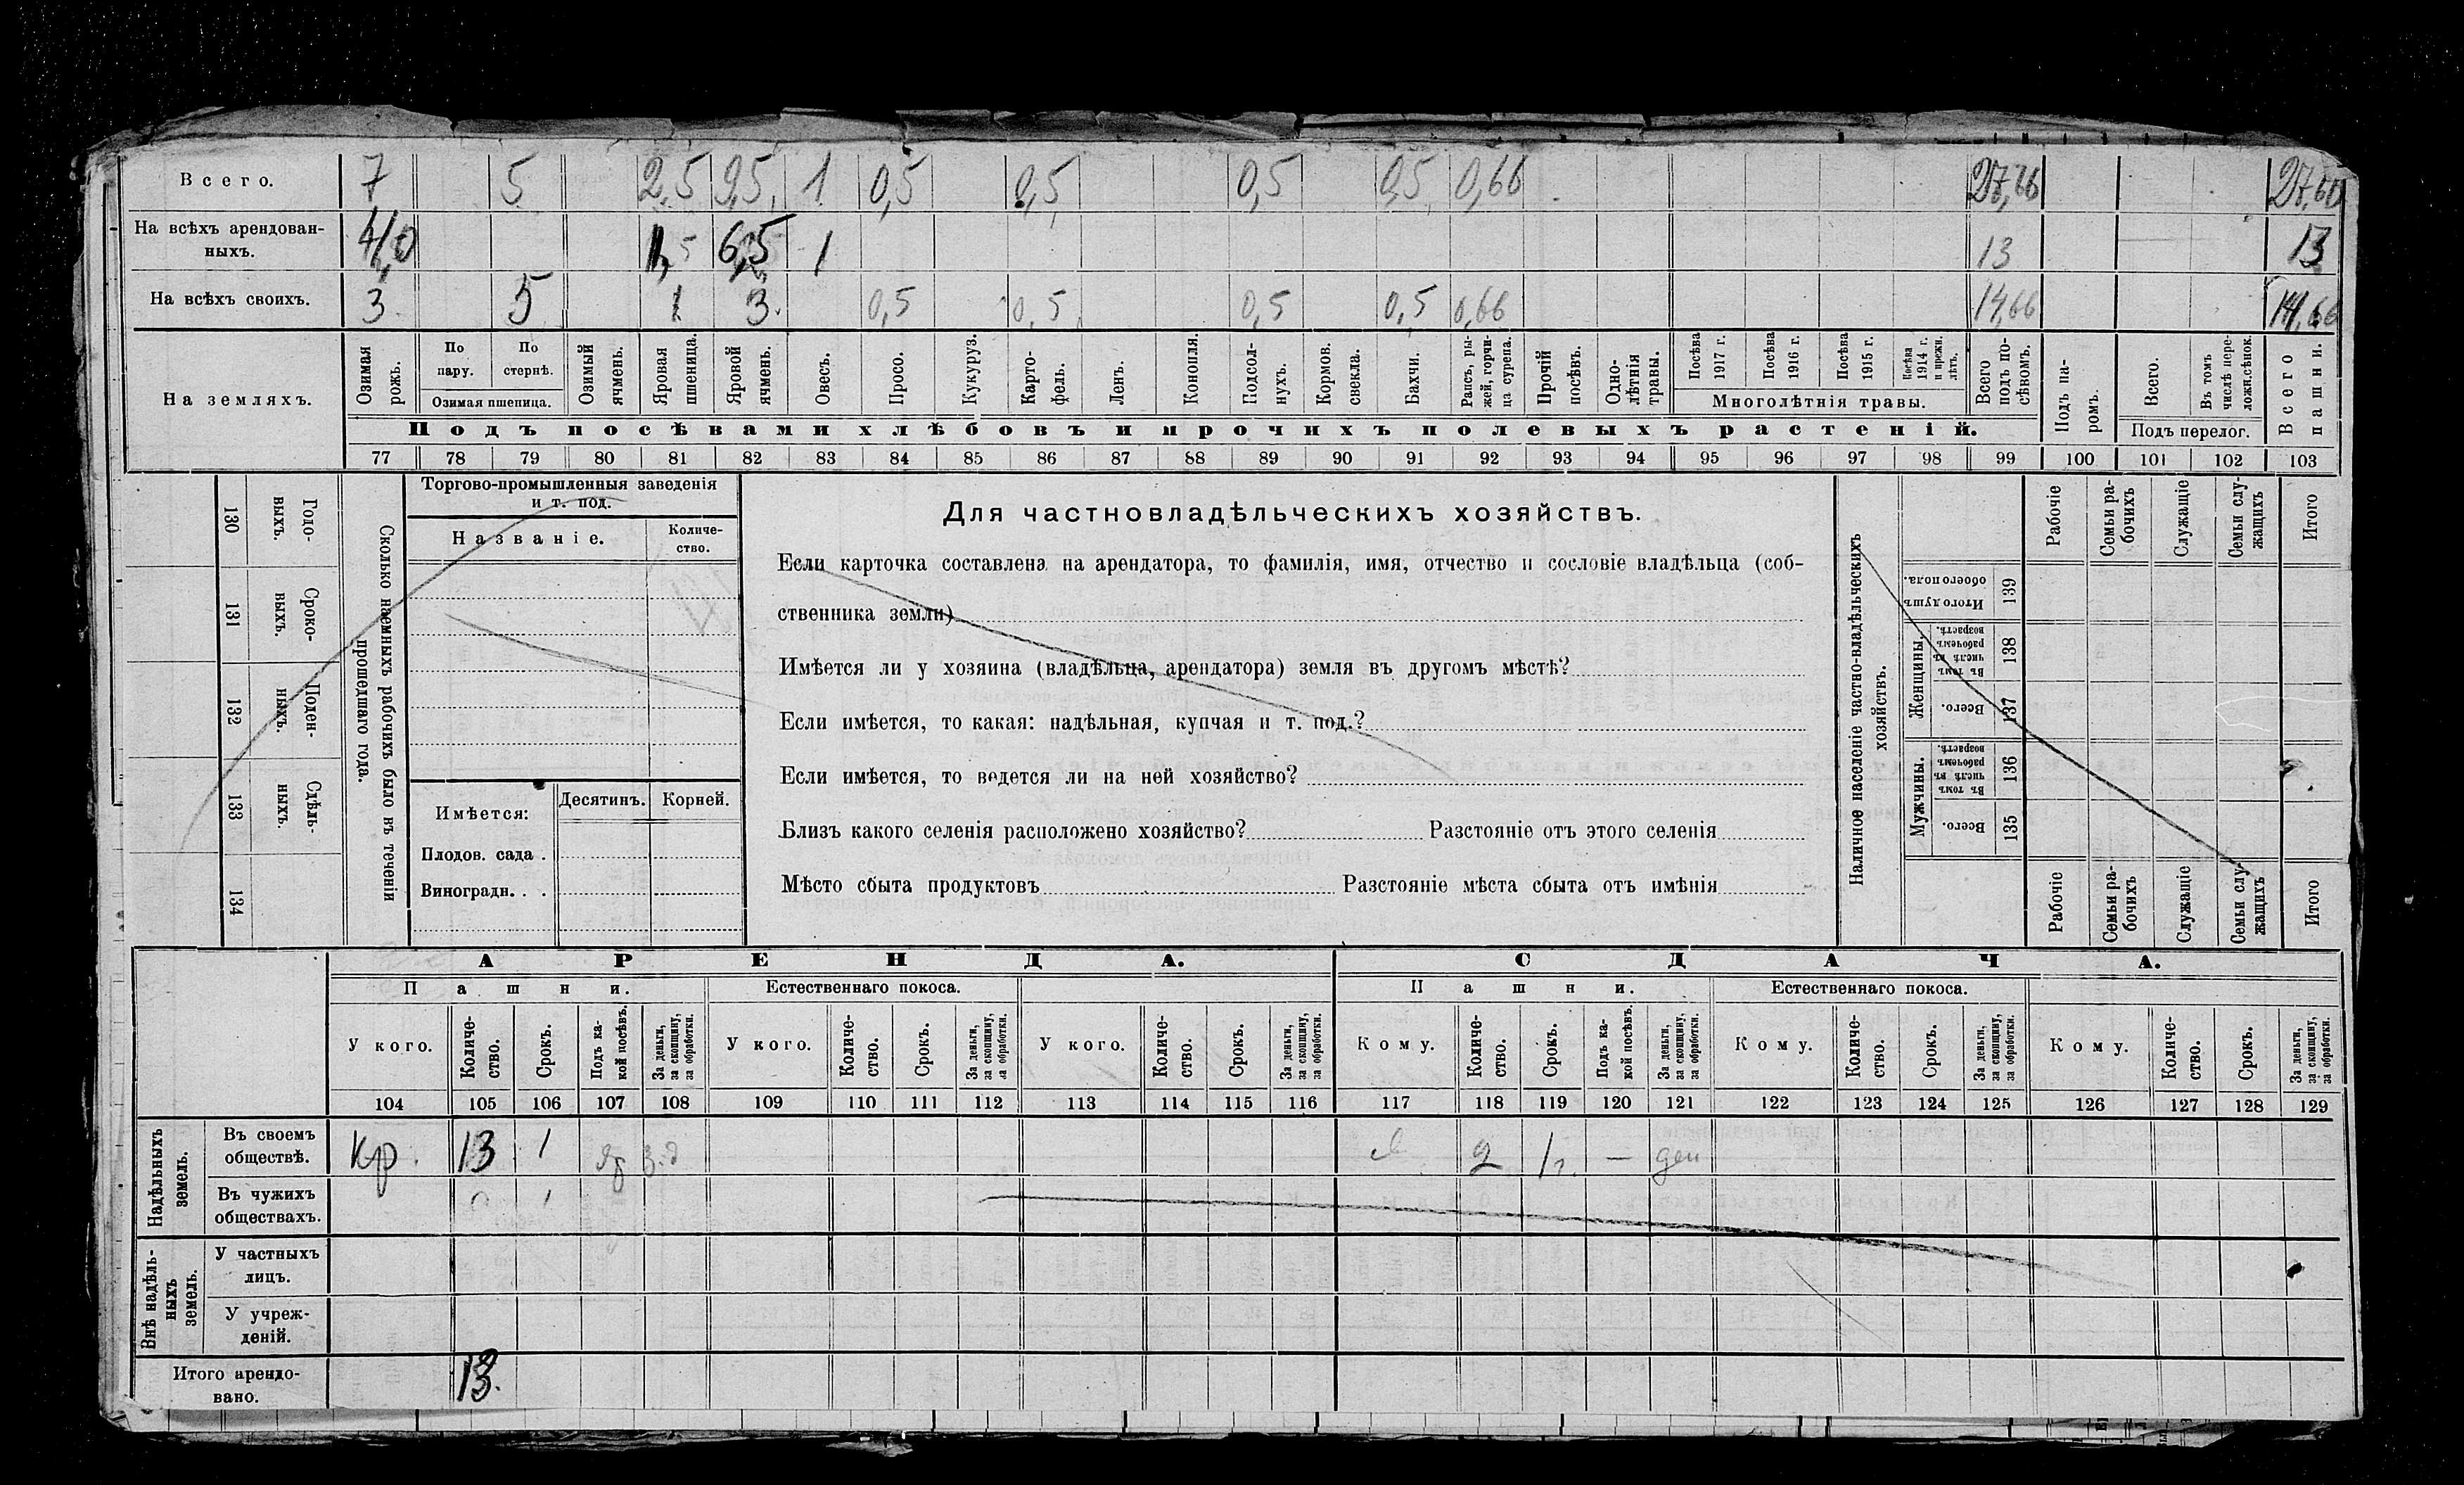 Всего. 7 5 2,5 9,5 1 0,5 0,5 0,5 0,5 0,66 27,66 27,66
На всѣхъ арендован-
ныхъ. 4,0 1,5 6,5 1 13 13
На всѣхъ своихъ. 3 5 1 3 0,5 0,5 0,5 0,5 0,66 14,66 14,66
На земляхъ.
Озимая рожь.
По пару.
По стернѣ.
Озимая пшеница.
Озимый ячмень.
Яровая пшеница.
Яровой ячмень.
Овесъ.
Просо.
Кукуруз.
Карто-
фель.
Ленъ.
Конопля.
Подсол-
нухъ.
Кормов. свекла.
Бахчи.
Рапсъ, ры-
жей, горчи-
ца сурепа.
Прочій посѣвъ.
Одно-
лѣтнія травы.
Посѣва 1917 г.
Посѣва 1916 г.
Посѣва 1915 г.
Посѣва 1914 г. и прежн. лѣтъ.
Многолѣтнія травы.
Всего подъ по-
сѣвомъ.
Подъ па-
ромъ.
Всего.
Въ томъ числѣ пере-
ложн.сѣнок.
Подъ перелог.
Всего пашни.
Подъ посѣвами хлѣбовъ и прочихъ полевыхъ растеній.
77 78 79 80 81 82 83 84 85 86 87 88 89 90 91 92 93 94 95 96 97 98 99 100 101 102 103
130 Годо-
выхъ.
131 Сроко-
выхъ.
132 Поден-
ныхъ.
133 Сдѣль-
ныхъ.
134
Сколько наемныхъ рабочихъ было въ теченіи
прошедшаго года.
Торгово-промышленныя заведенія
и т. под.
Названіе.
Количе-
ство.
Имѣется: Десятинъ. Корней.
Плодов. сада .
Виноградн. . .
Для частновладѣльческихъ хозяйствъ.
Если карточка составлена на арендатора, то фамилія, имя, отчество и сословіе владѣльца (соб-
ственника земли)
Имѣется ли у хозяина (владѣльца, арендатора) земля въ другомъ мѣстѣ?
Если имѣется, то какая: надѣльная, купчая и т. под.?
Если имѣется, то ведется ли на ней хозяйство?
Близъ какого селенія расположено хозяйство? Разстояніе отъ этого селенія
Мѣсто сбыта продуктовъ Разстояніе мѣста сбыта отъ имѣнія
Наличное населеніе частно-владѣльческихъ
хозяйствъ.
Рабочіе
Семьи ра-
бочихъ
Служащіе
Семьи слу-
жащихъ
Итого
Итого душъ обоего пола. 139
Женщины.
Въ томъ числѣ въ рабочемъ возрастѣ. 138
Всего. 137
Мужчины.
Въ томъ числѣ въ рабочемъ возрастѣ. 136
Всего. 135
Рабочіе
Семьи ра-
бочихъ
Служащіе
Семьи слу-
жащихъ
Итого
АРЕНДА. СДАЧА.
Пашни. Естественнаго покоса. Пашни. Естественнаго покоса.
У кого.
Количе-
ство.
Срокъ.
Подъ ка-
кой посѣвъ.
За деньги,
за скопщину,
за обработки.
У кого.
Количе-
ство.
Срокъ.
За деньги,
за скопщину,
за обработки.
У кого.
Количе-
ство.
Срокъ.
За деньги,
за скопщину,
за обработки.
Кому.
Количе-
ство.
Срокъ.
Подъ ка-
кой посѣвъ.
За деньги,
за скопщину,
за обработки.
Кому.
Количе-
ство.
Срокъ.
За деньги,
за скопщину,
за обработки.
Кому.
Количе-
ство.
Срокъ.
За деньги,
за скопщину,
за обработки.
104 105 106 107 108 109 110 111 112 113 114 115 116 117 118 119 120 121 122 123 124 125 126 127 128 129
Надѣльныхъ
земель.
Въ своемъ
обществѣ. Кр. 13 1 яр з.д 2 1 г. — ден
Въ чужихъ
обществахъ.
Внѣ надѣль-
ныхъ
земель.
У частныхъ
лицъ.
У учреж-
деній.
Итого арендо-
вано. 13.